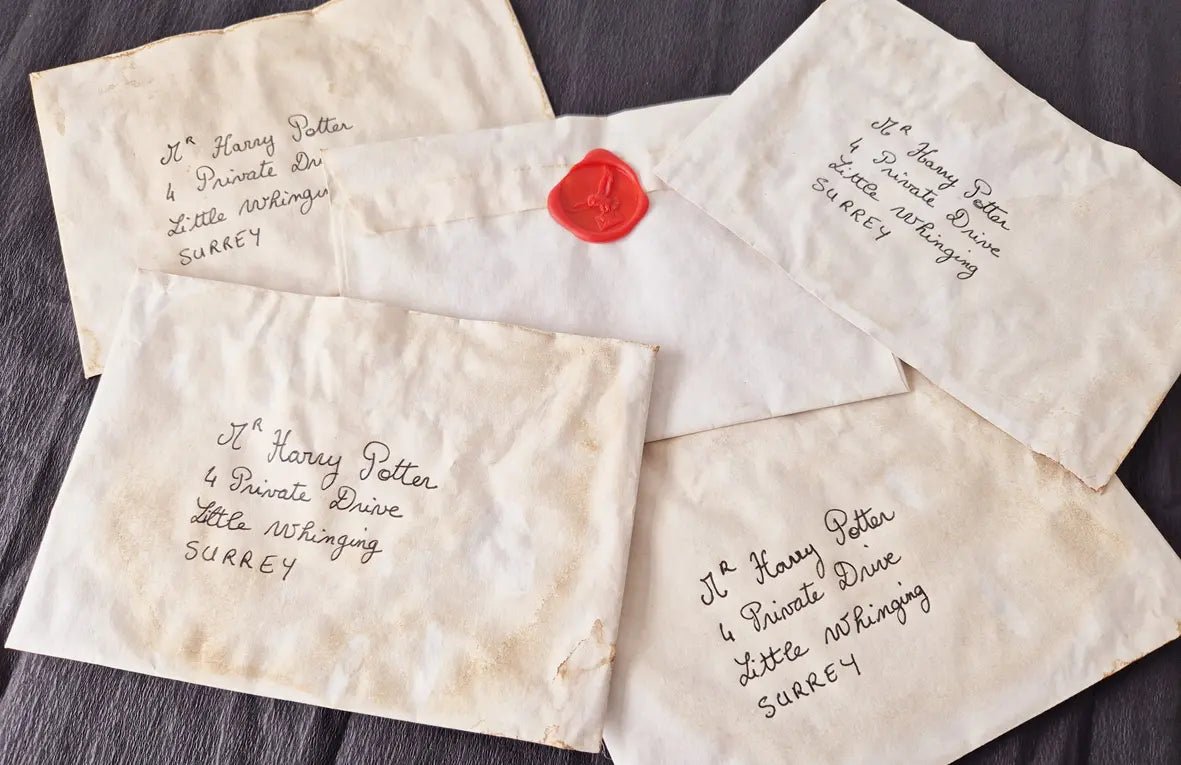 Mᴿ Harry Potter
4 Private Dri
Little Whingin
SURREY
Mᴿ Harry Potter
4 Private Drive
Little Whinging
SURREY
Mᴿ Harry Potter
4 Private Drive
Little Whinging
SURREY
Mᴿ Harry Potter
4 Private Drive
Little Whinging
SURREY